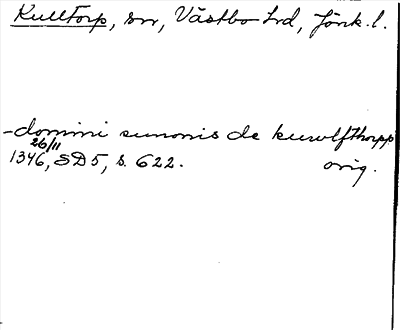 Kulltorp, sn, Västbo hd, Jönk. l.
-domini sunonis de kuwlfthorpp
26/11
1346, SD5, s. 622. orig.